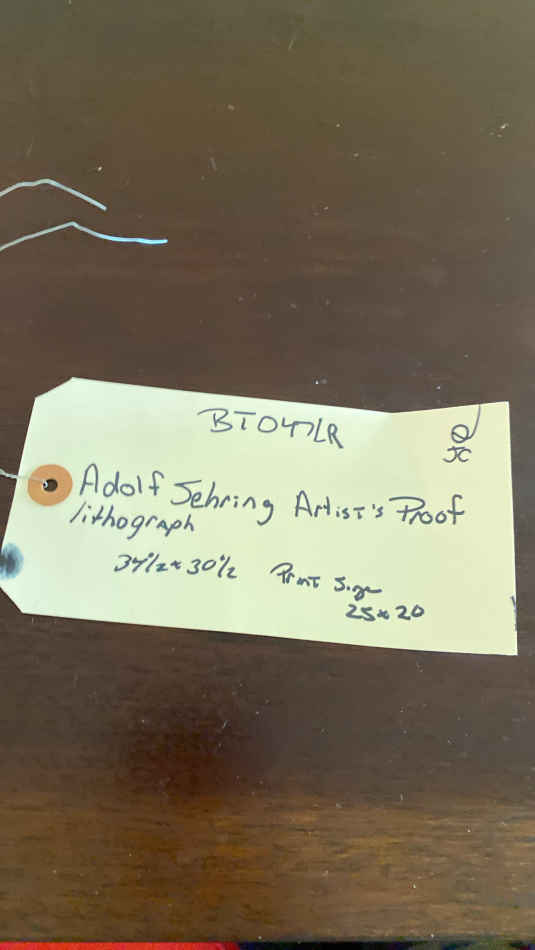 BT047LR
JC
Adolf Sehring Artist's Proof
lithograph
34 1/2 x 30 1/2 Print Size
25 x 20